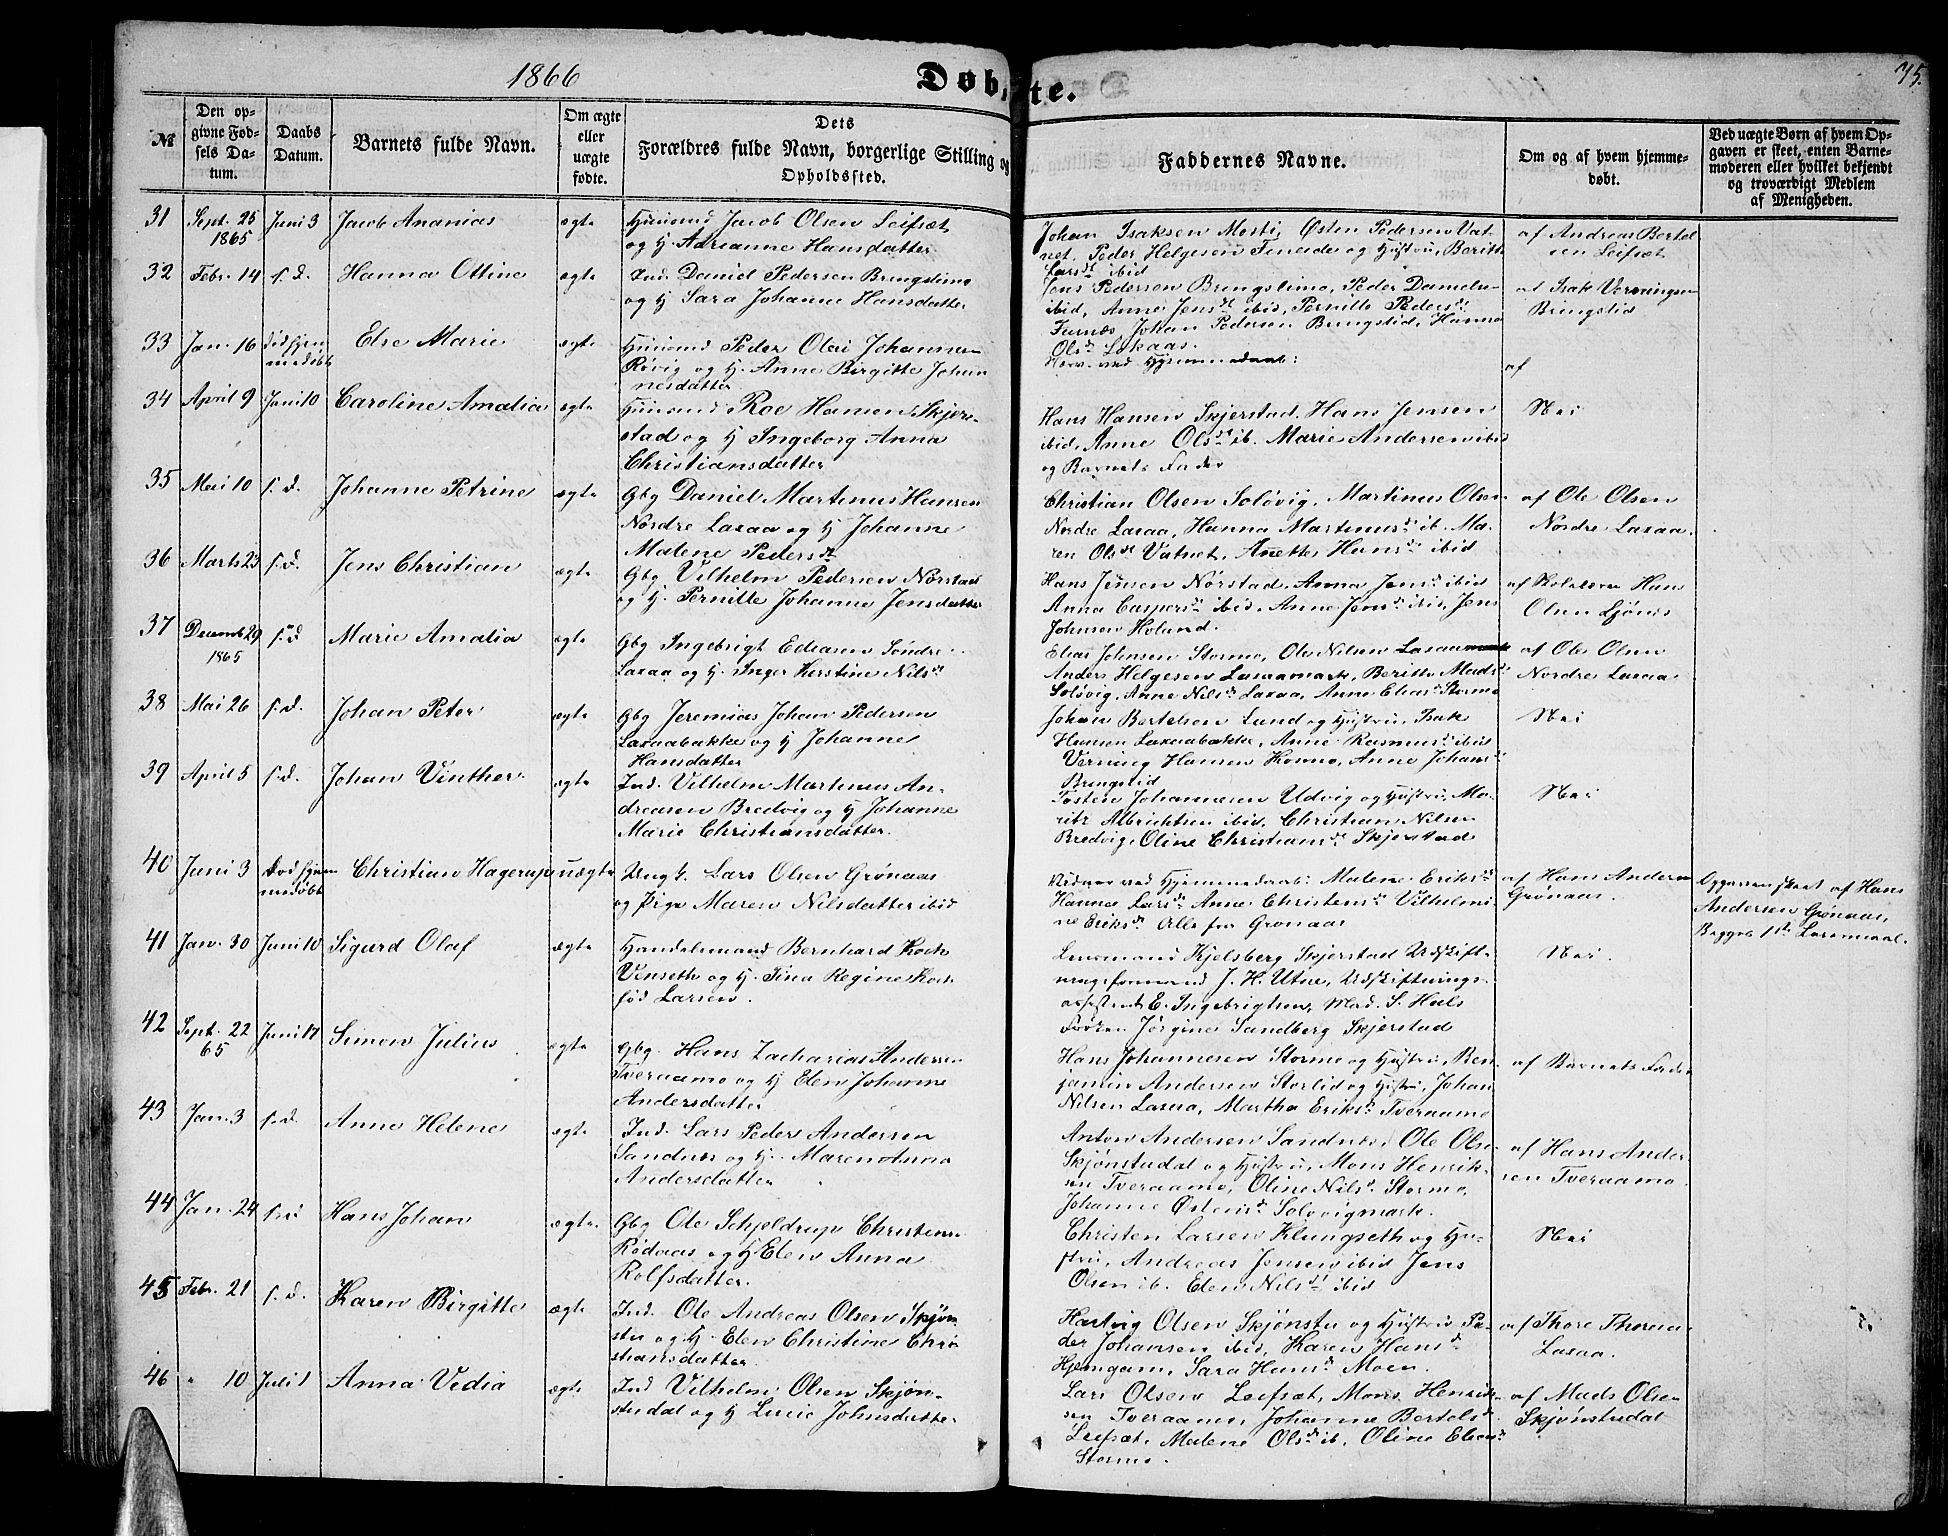 1866
Døbte.
75.
№
Den opgivne Fødsels Datum.
Daabs Datum.
Barnets fulde Navn.
Om ægte eller uægte fødte.
Dets Forældres fulde Navn, borgerlige Stilling og Opholdssted.
Faddernes Navne.
Om og af hvem hjemmedøbt.
Ved uægte Børn af hvem Opgaven er skeet, enten Barnemoderen eller hvilket bekjendt og troværdigt Medlem af Menigheden.
31 Sept. 25 1865 Juni 3 Jacob Ananias ægte
Huusmd Jacob Olsen Leifset
og H. Adrianne Hansdatter
Johan Isaksen Mosti, Østen Pedersen Vat-
net, Peder Helgesen og Hustru, Berith
Larsdt ibid
af Andreas Bertel
sen Leifset
32 Febr. 14 s. d. Hanna Ottine ægte
Ind. Daniel Pedersen Bringslimo
og H Sara Johanne Hansdatter
Jens Pedersen Bringslimo, Peder Danielsen
ibid, Anne Jensdt ibid, Pernille Pedersdt
Furnæs, Johan Pedersen Bringslid, Hanna
Olsdt Løkaas.
af Isak Verningsen
Bringslid
33 Jan. 16 Else Marie ægte
Huusmd Peder Olai Johannesen
Røvig og H. Anne Birgitte Johan
nesdatter
af
34 April 9 Juni 10 Caroline Amalia ægte
Huusmd Roe Hansen Skjer-
stad og H Ingeborg Anna
Christiansdatter
Hans Hansen Skjerstad, Hans Jensen
ibid, Anne Olsdt ib. Marie Andersen ibid
og Barnets Fader
Nei
35 Mai 10 s. d. Johanne Petrine ægte
Gbg Daniel Martinus Hansen
Nordre Laxaa og H Johanne
Malene Pedersdt
Christian Olsen Soløvig, Martinus Olsen
Nordre Laxaa, Hanna Martinusdt ib. Ma-
ren Olsdt Vatnet, Anette Hansdt ibid
af Ole Olsen
Nordre Laxaa.
36 Marts 23 s. d. Jens Christian ægte
Gbg Vilhelm Pedersen Nørstad
og H. Pernille Johanne Jensdatter
Hans Jensen Nørstad, Anna Jensdt ibid
Anna Caspersdt ibid, Anne Jensdt ibid, Jens
Johnsen Høland.
af Skolelærer Hans
Olsen Ljønes
37 Decemb 29 1865 s. d. Marie Amalia ægte
Gbg Ingebrigt Eliasen Søndre
Laxaa og H. Inger Kerstine Nilsdt
Elias Johnsen Stormo, Ole Nilsen Laxaa
Anders Helgesen Laxaamark, Berith Madsdt
Soløvig, Anne Nilsdt Laxaa, Anne Eliasdt Stormo
af Ole Olsen
Nordre Laxaa
38 Mai 26 s. d. Johan Peter ægte
Gbg Jeremias Johan Pedersen
Laxaabakke og H Johanne
Hansdatter
Johan Bertelsen Lund og Hustru, Isak
Hansen Laxaabakke, Anne Rasmusdt ibid
Verning Hansen, Anne Johansdt
Bringslid
Nei
39 April 5 s. d. Johan Vinther ægte
Ind. Vilhelm Martinus An-
dreasen Bredvig og H Johanne
Marie Christiansdatter.
Tosten Johannesen Udvig og Hustru, Ma-
rith Albrichtsen ibid, Christian Nilsen
Bredvig, Oline Christiansdt Skjerstad
Nei
40 Juni 3 Christian Hagerup uægte
Ungk. Lars Olsen Grønaas
og Pige Maren Nilsdatter ibid
Vidner ved Hjemmedaab: Malene Eriksdt
Hanna Larsdt Anne Christensdt Vilhelmi-
ne Eriksdt Alle fra Grønaas
af Hans Andersen
Grønaas.
Opgaven skeet af Hans
Andersen Grønaas,
Begges 1ste Leiermaal.
41 Jan. 30 Juni 10 Sigurd Olaf ægte
Handelsmand Bernhard Koch
Venseth og H. Tina Regine Koch
fød Larsen.
Lensmand Kjelsberg Skjerstad Udskift-
ningsformand J. H. Utne, Udskiftnings-
assistent E. Ingebrigtsen, Mad. S. Hals
Frøken Jørgine Sandberg Skjerstad
Nei.
42 Sept. 22 65 Juni 17 Simon Julius ægte
Gbg. Hans Zacharias Andersen
Tveraamo og H Elen Johanne
Andersdatter
Hans Johannesen Stormo og Hustru, Ben-
jamin Andersen Storlid og Hustru, Johan
Nilsen Laxaa, Martha Eriksdt Tveraamo
af Barnets Fader
43 Jan. 3 s. d. Anne Helene ægte
Ind. Lars Peder Andersen
Sandnes og H. Maren Anna
Andersdatter
Anton Andersen Sandnes, Ole Olsen
Skjønstudal og Hustru, Mons Henrik-
sen Tveraamo, Oline Nilsdt Stormo,
Johanne Østensdt Soløvigmark.
af Hans Ander
sen Tveraamo.
44 Jan. 24 s. d. Hans Johan ægte.
Gbg Ole Schjeldrup Christens.
Rødaas og H Elen Anna
Rolfsdatter.
Christen Larsen Klungseth og Hu-
stru, Andreas Jensen ibid Jens
Olsen ib. Elen Nilsdt ibid
Nei
45 Febr. 21 s. d. Karen Birgitte ægte
Ind. Ole Andreas Olsen Skjøn
stu og H. Elen Christine Chri
stiansdatter.
Hartvig Olsen Skjønstu og Hustru, Pe-
der Johansen ibid, Karen Hansdt
Hjemgam, Sara Hansdt Moen.
af Thore Thoresen
Laxaa.
46 " 10 Juli 1 Anna Vedia ægte
Ind Vilhelm Olsen Skjøn-
studal og H Lucie Johnsdatter
Lars Olsen Leifset, Mons Henrik-
sen Tveraamo, Johanne Bertelsdt
Leifset, Malene Olsdt ib, Oline Eliasdt
Stormo.
af Mads Olsen
Skjønstudal